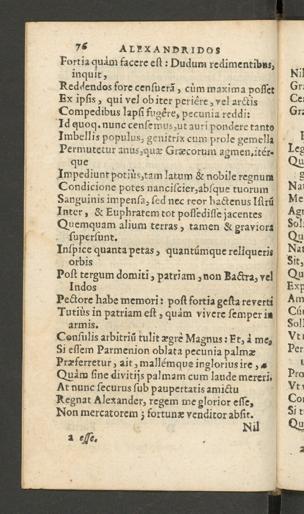 76 ALEXANDRIDOS
Fortia quàm facere est : Dudum redimentibus,
inquit,
Reddendos fore censuerã, cùm maxima posset
Ex ipsis, qui vel ob iter periére, vel arctis
Compedibus lapsi fugêre, pecunia reddi:
Id quoq. nunc censemus, ut auri pondere tanto
Imbellis populus, genitrix cum prole gemella
Permutetur anus, quæ Græcorum agmen, itér-
que
Impediunt potiùs, tam latum & nobile regnum
Condicione potes nancíscier, absque tuorum
Sanguinis impensa, sed nec reor hactenus Istrũ
Inter, & Euphratem tot possedisse jacentes
Quemquam alium terras, tamen & graviora
supersunt.
Inspice quanta petas, quantúmque reliqueris
orbis
Post tergum domiti, patriam, non Bactra, vel
Indos
Pectore habe memori: post fortia gesta reverti
Tutiùs in patriam est, quàm vivere semper in
armis.
Consulis arbitriũ tulit ægrè Magnus: Et, à me,
Si essem Parmenion oblata pecunia palmæ
Præferretur, ait, mallémque inglorius ire,
Quàm sine divitijs palmam cum laude mereri.
At nunc securus sub paupertatis amictu
Regnat Alexander, regem me glorior esse,
Non mercatorem; fortunæ venditor absit.
Nil
a esse.